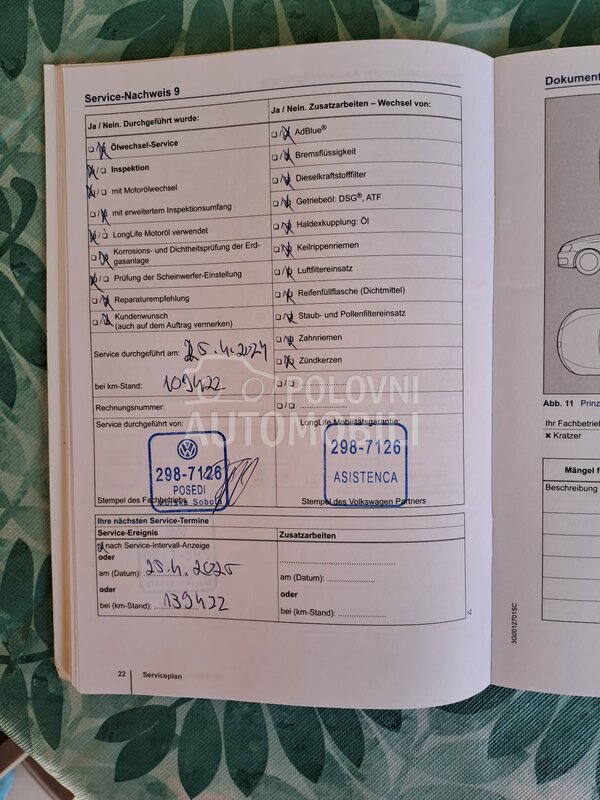 Service-Nachweis 9
Ja / Nein. Durchgeführt wurde:
Ölwechsel-Service
Inspektion
mit Motorölwechsel
mit erweitertem Inspektionsumfang
LongLife Motoröl verwendet
Korrosions- und Dichtheitsprüfung der Erd-
gasanlage
Prüfung der Scheinwerfer-Einstellung
Reparaturempfehlung
Kundenwunsch
(auch auf dem Auftrag vermerken)
Service durchgeführt am: 25.4.2024
bei km-Stand: 109422
Rechnungsnummer:
Service durchgeführt von:
298-7126
POSEDI
Murska Sobota
Stempel des Fachbetriebs
Ja / Nein. Zusatzarbeiten – Wechsel von:
AdBlue®
Bremsflüssigkeit
Dieselkraftstofffilter
Getriebeöl: DSG®, ATF
Haldexkupplung: Öl
Keilrippenriemen
Luftfiltereinsatz
Reifenfüllflasche (Dichtmittel)
Staub- und Pollenfiltereinsatz
Zahnriemen
Zündkerzen
LongLife Mobilitätsgarantie
298-7126
ASISTENCA
Stempel des Volkswagen Partners
POLOVNI
AUTOMOBILI
Ihre nächsten Service-Termine
Service-Ereignis
nach Service-Intervall-Anzeige
oder
am (Datum): 25.4.2025
oder
bei (km-Stand): 139422
Zusatzarbeiten
am (Datum):
oder
bei (km-Stand):
22 Serviceplan
3G0012701SC
Dokument
Abb. 11 Prinz
Ihr Fachbetrie
× Kratzer
Mängel f
Beschreibung